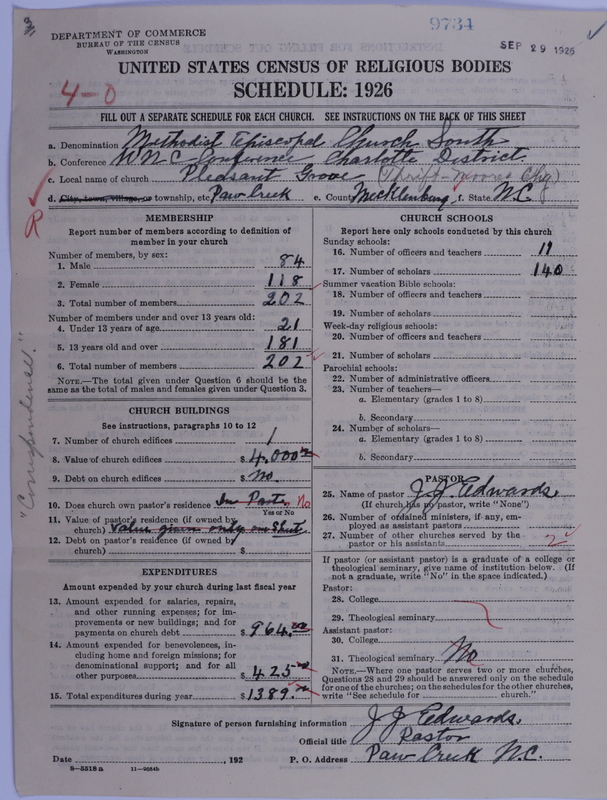 9734
DEPARTMENT OF COMMERCE
BUREAU OF THE CENSUS
WASHINGTON
SEP 29 1926
UNITED STATES CENSUS OF RELIGIOUS BODIES
SCHEDULE: 1926
4-0
FILL OUT A SEPARATE SCHEDULE FOR EACH CHURCH. SEE INSTRUCTIONS ON THE BACK OF THIS SHEET
a. Denomination Methodist Episcopal Church South
b. Conference W.N.C. Conference Charlotte District
c. Local name of church Pleasant Grove (Thrift-Moores Chg)
d. City, town, village, or township, etc. Paw Creek e. County Mecklenburg f. State N.C.
R
MEMBERSHIP
Report number of members according to definition of member in your church
Number of members, by sex:
1. Male 84
2. Female 118
3. Total number of members 202
Number of members under and over 13 years old:
4. Under 13 years of age 21
5. 13 years old and over 181
6. Total number of members 202
NOTE.—The total given under Question 6 should be the same as the total of males and females given under Question 3.
CHURCH BUILDINGS
See instructions, paragraphs 10 to 12
7. Number of church edifices 1
8. Value of church edifices $ 4,000.00
9. Debt on church edifices $ No.
10. Does church own pastor's residence In Part No
Yes or No
11. Value of pastor's residence (if owned by church) Value given only on
12. Debt on pastor's residence (if owned by church) $
EXPENDITURES
Amount expended by your church during last fiscal year
13. Amount expended for salaries, repairs, and other running expenses; for improvements or new buildings; and for payments on church debt $ 964.00
14. Amount expended for benevolences, including home and foreign missions; for denominational support; and for all other purposes $ 425.00
15. Total expenditures during year $ 1389.00
CHURCH SCHOOLS
Report here only schools conducted by this church
Sunday schools:
16. Number of officers and teachers 19
17. Number of scholars 140
Summer vacation Bible schools:
18. Number of officers and teachers
19. Number of scholars
Week-day religious schools:
20. Number of officers and teachers
21. Number of scholars
Parochial schools:
22. Number of administrative officers
23. Number of teachers—
a. Elementary (grades 1 to 8)
b. Secondary
24. Number of scholars—
a. Elementary (grades 1 to 8)
b. Secondary
PASTOR
25. Name of pastor J. J. Edwards
(If church has no pastor, write "None")
26. Number of ordained ministers, if any, employed as assistant pastors
27. Number of other churches served by the pastor or his assistants 2
If pastor (or assistant pastor) is a graduate of a college or theological seminary, give name of institution below. (If not a graduate, write "No" in the space indicated.)
Pastor:
28. College
29. Theological seminary
Assistant pastor:
30. College
31. Theological seminary No
NOTE.—Where one pastor serves two or more churches, Questions 28 and 29 should be answered only on the schedule for one of the churches; on the schedules for the other churches, write "See schedule for church."
Signature of person furnishing information J. J. Edwards
Official title Pastor
Date , 192 P. O. Address Paw Creek N.C.
8—5518 a 11—9684b
"Correspondence."